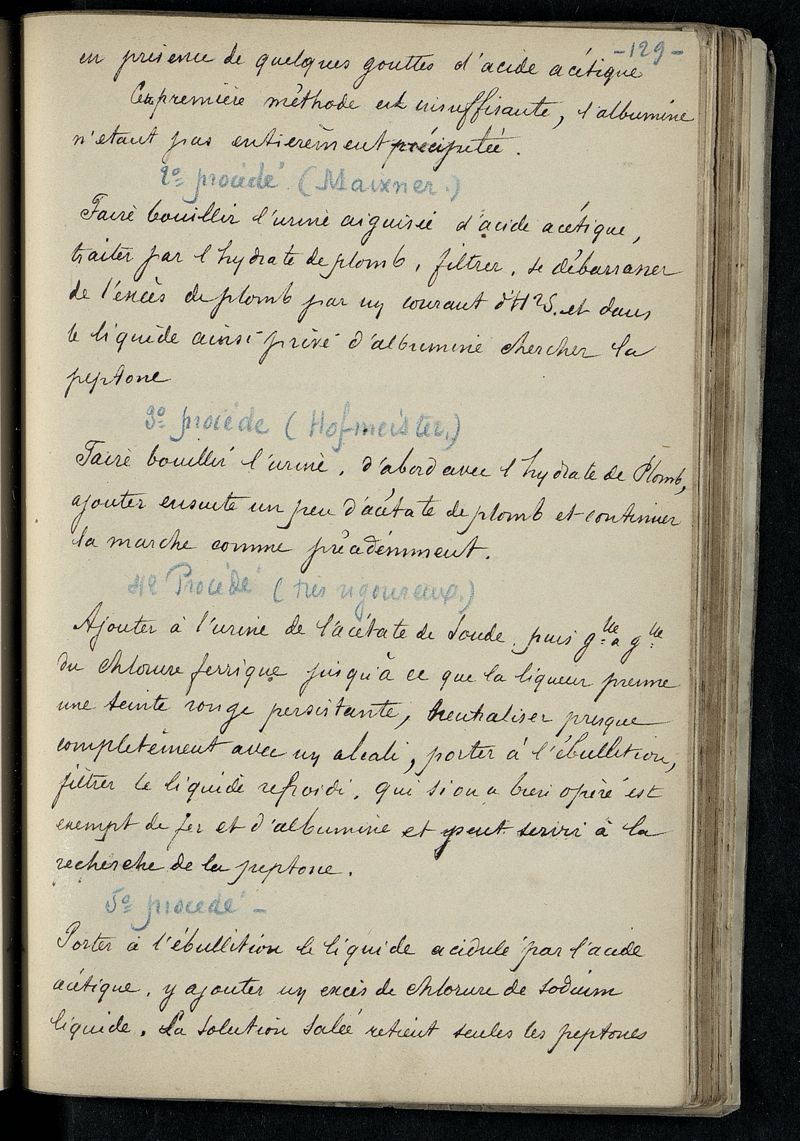 -129-
en présence de quelques gouttes d'acide acétique
Cette première méthode est insuffisante, l'albumine
n'étant pas entièrement précipitée.
2º procédé (Maixner.)
Faire bouillir l'urine aiguisée d'acide acétique,
traiter par l'hydrate de plomb, filtrer, se débarrasser
de l'excès de plomb par un courant d'H2S. et dans
le liquide ainsi privé d'albumine chercher la
peptone
3º procédé (Hofmeister.)
Faire bouillir l'urine, d'abord avec l'hydrate de Plomb,
ajouter ensuite un peu d'acétate de plomb et continuer
la marche comme précédemment.
4º Procédé (très rigoureux.)
Ajouter à l'urine de l'acétate de Soude, puis gtte à gtte
du chlorure ferrique jusqu'à ce que la liqueur prenne
une teinte rouge persistante, neutraliser presque
complètement avec un alcali, porter à l'ébullition,
filtrer le liquide refroidi, qui si on a bien opéré est
exempt de fer et d'albumine et peut servir à la
recherche de la peptone.
5º procédé -
Porter à l'ébullition le liquide acidulé par l'acide
acétique, y ajouter un excès de chlorure de sodium
liquide. La solution salée retient seules les peptones